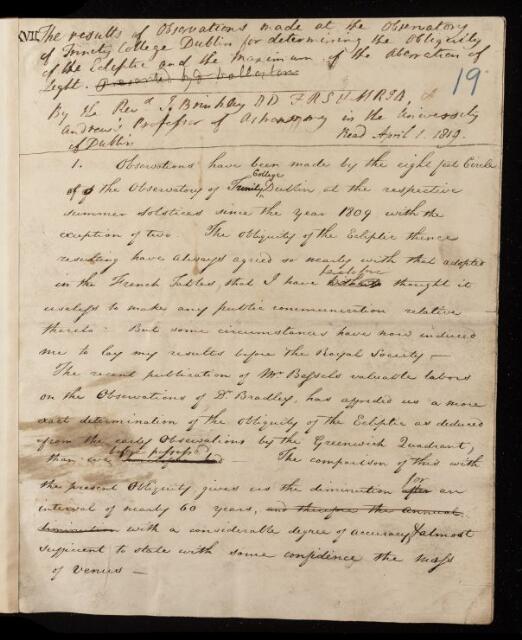 XVII The results of Observations made at the Observatory
of Trinity College Dublin for determining the Obliquity
of the Ecliptic and the Maximum of the Aberration of
Light. presented by D Wollaston
19
By the Revd. J. Brinkley DD FRS & MRIA, &
Andrew's Professor of Astronomy in the University
of Dublin
Read April 1. 1819.
1. Observations have been made by the eight feet Circle
College
of the Observatory of Trinity Dublin at the respective
summer solstices since the year 1809 with the
exception of two. The obliquity of the Ecliptic thence
resulting have always agreed so nearly with that adopted
heretofore
in the French Tables, that I have thought it
useless to make any public communication relative
thereto. But some circumstances have now induced
me to lay my results before the Royal Society —
The recent publication of Mr Bessels valuable labors
on the Observations of Dr Bradley, has afforded us a more
exact determination of the obliquity of the Ecliptic as deduced
from the early Observations by the Greenwich Quadrant,
before possessed
than we — The comparison of this with
for
the present Obliquity gives us the diminution after an
interval of nearly 60 years, and therefore the annual
diminution with a considerable degree of accuracy & almost
sufficient to state with some confidence the mass
of Venus —